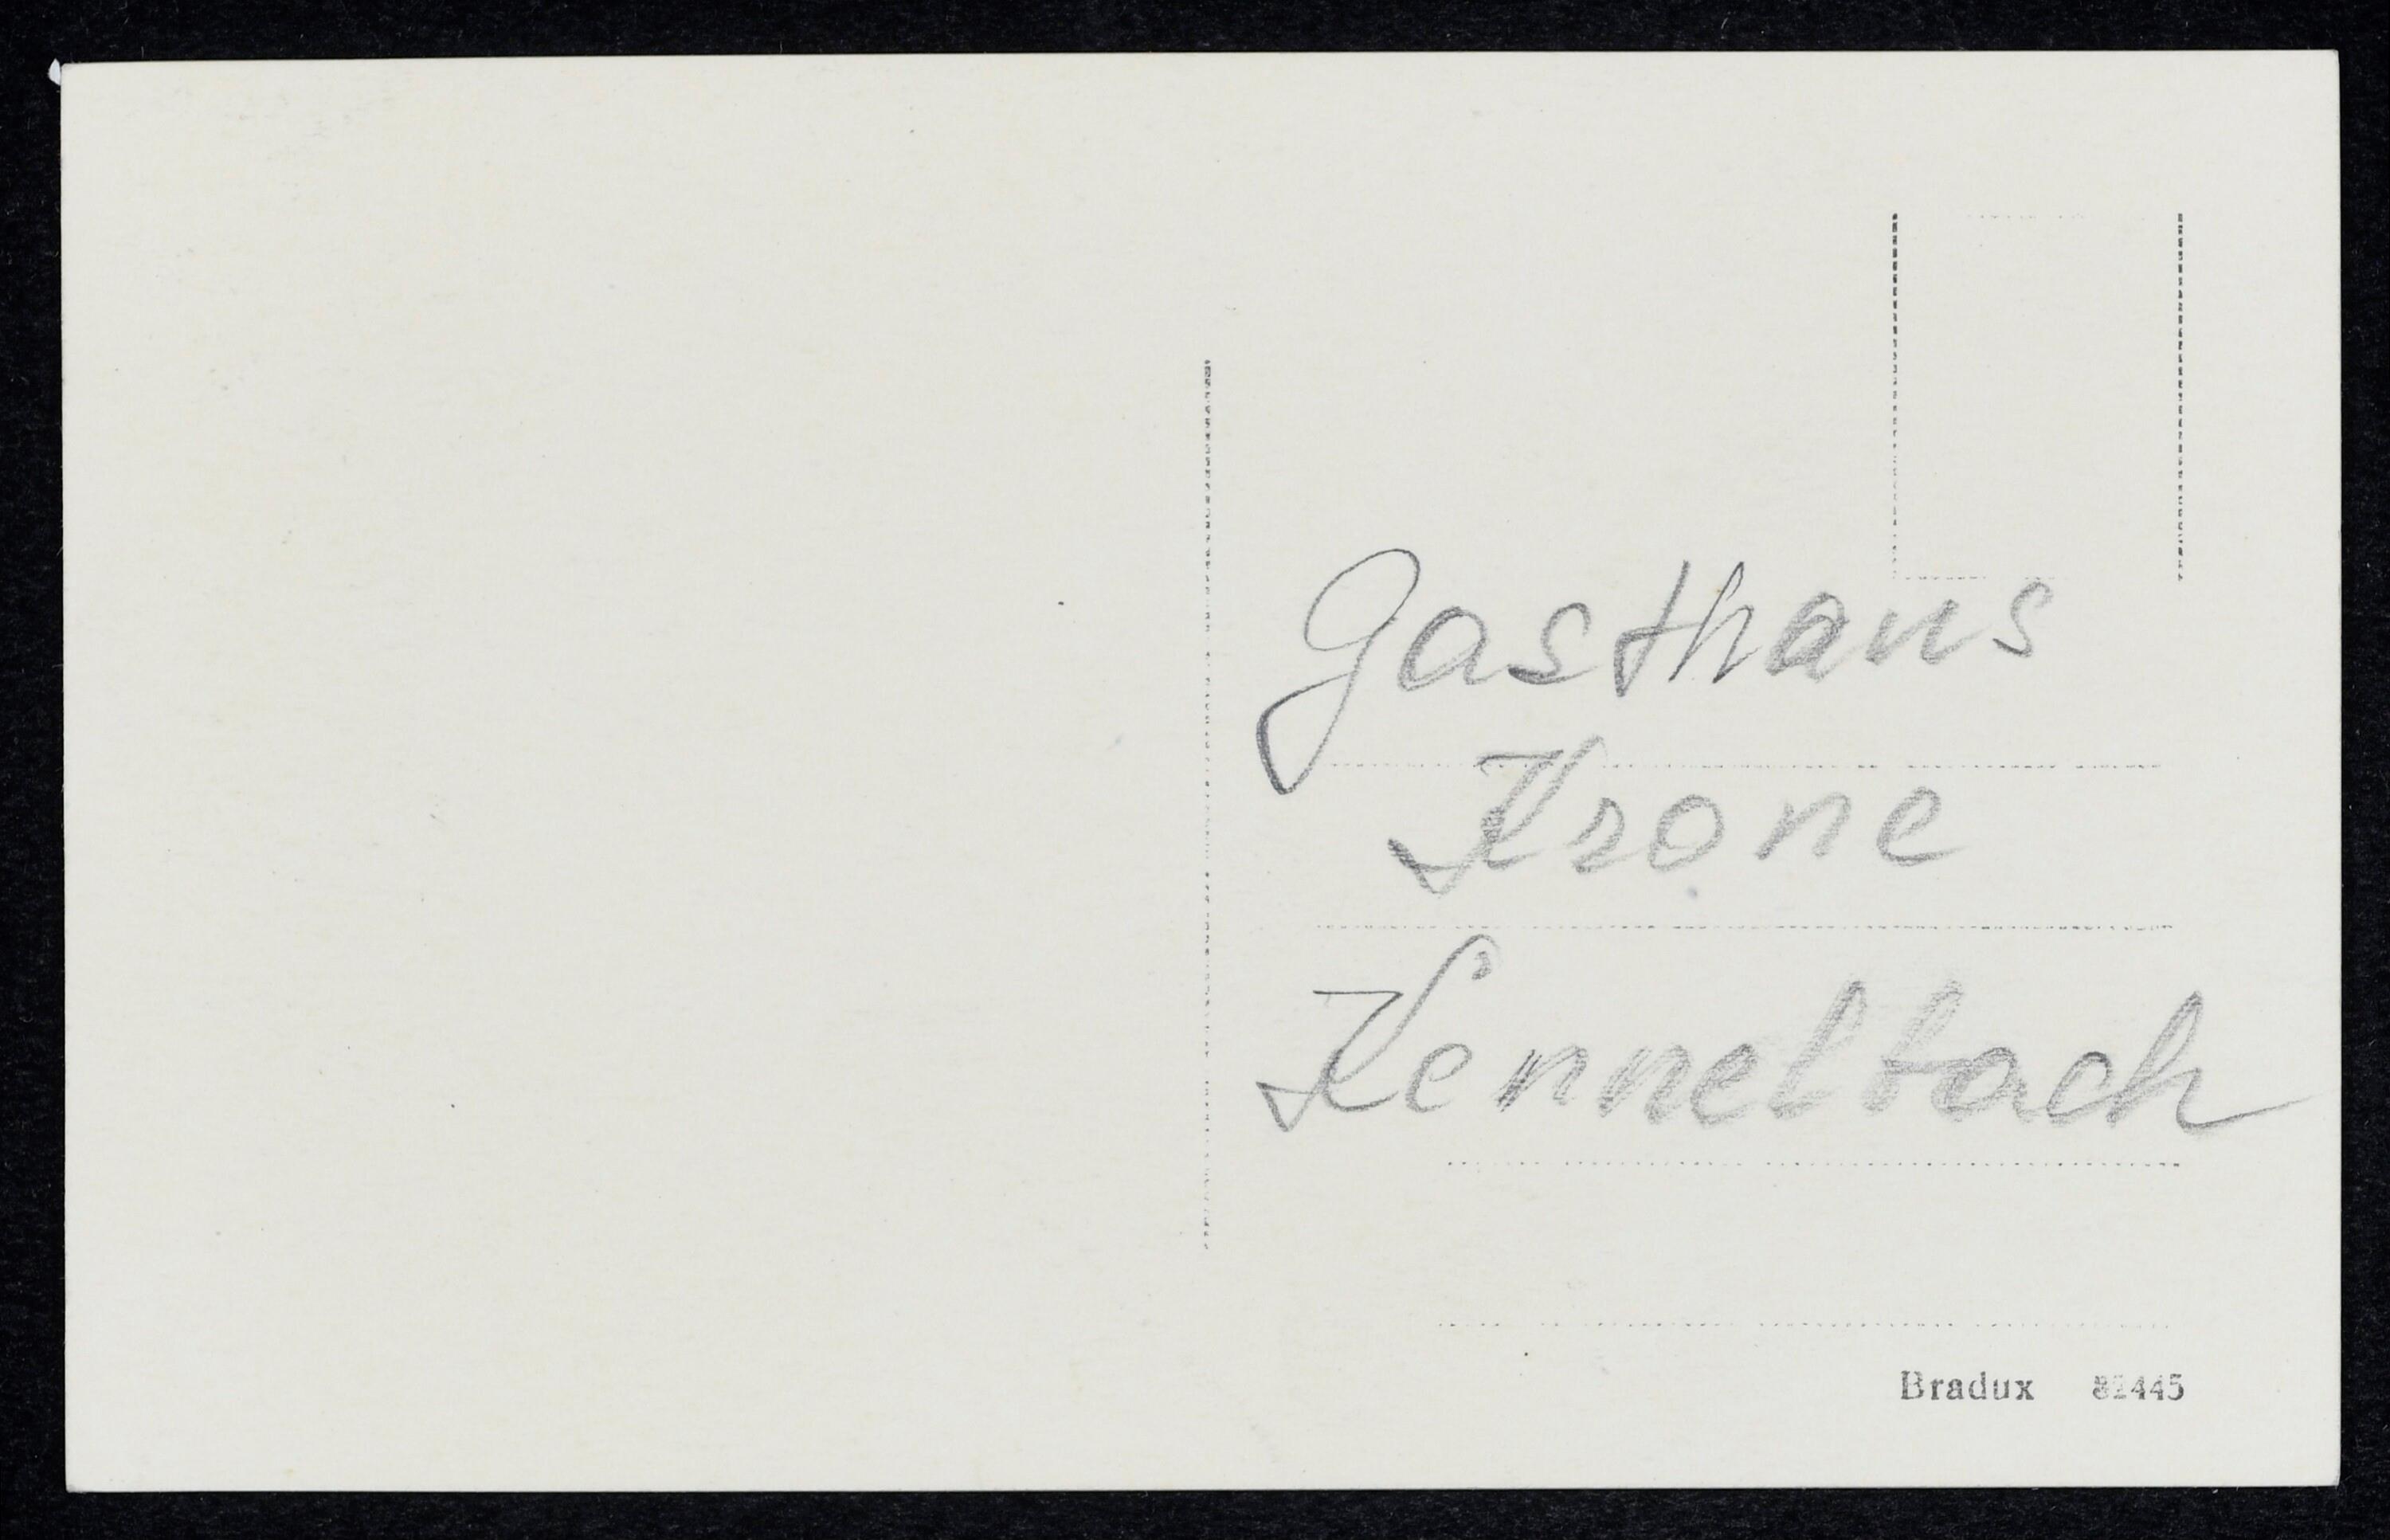 Gasthaus
Krone
Kennelbach
Bradux 82445